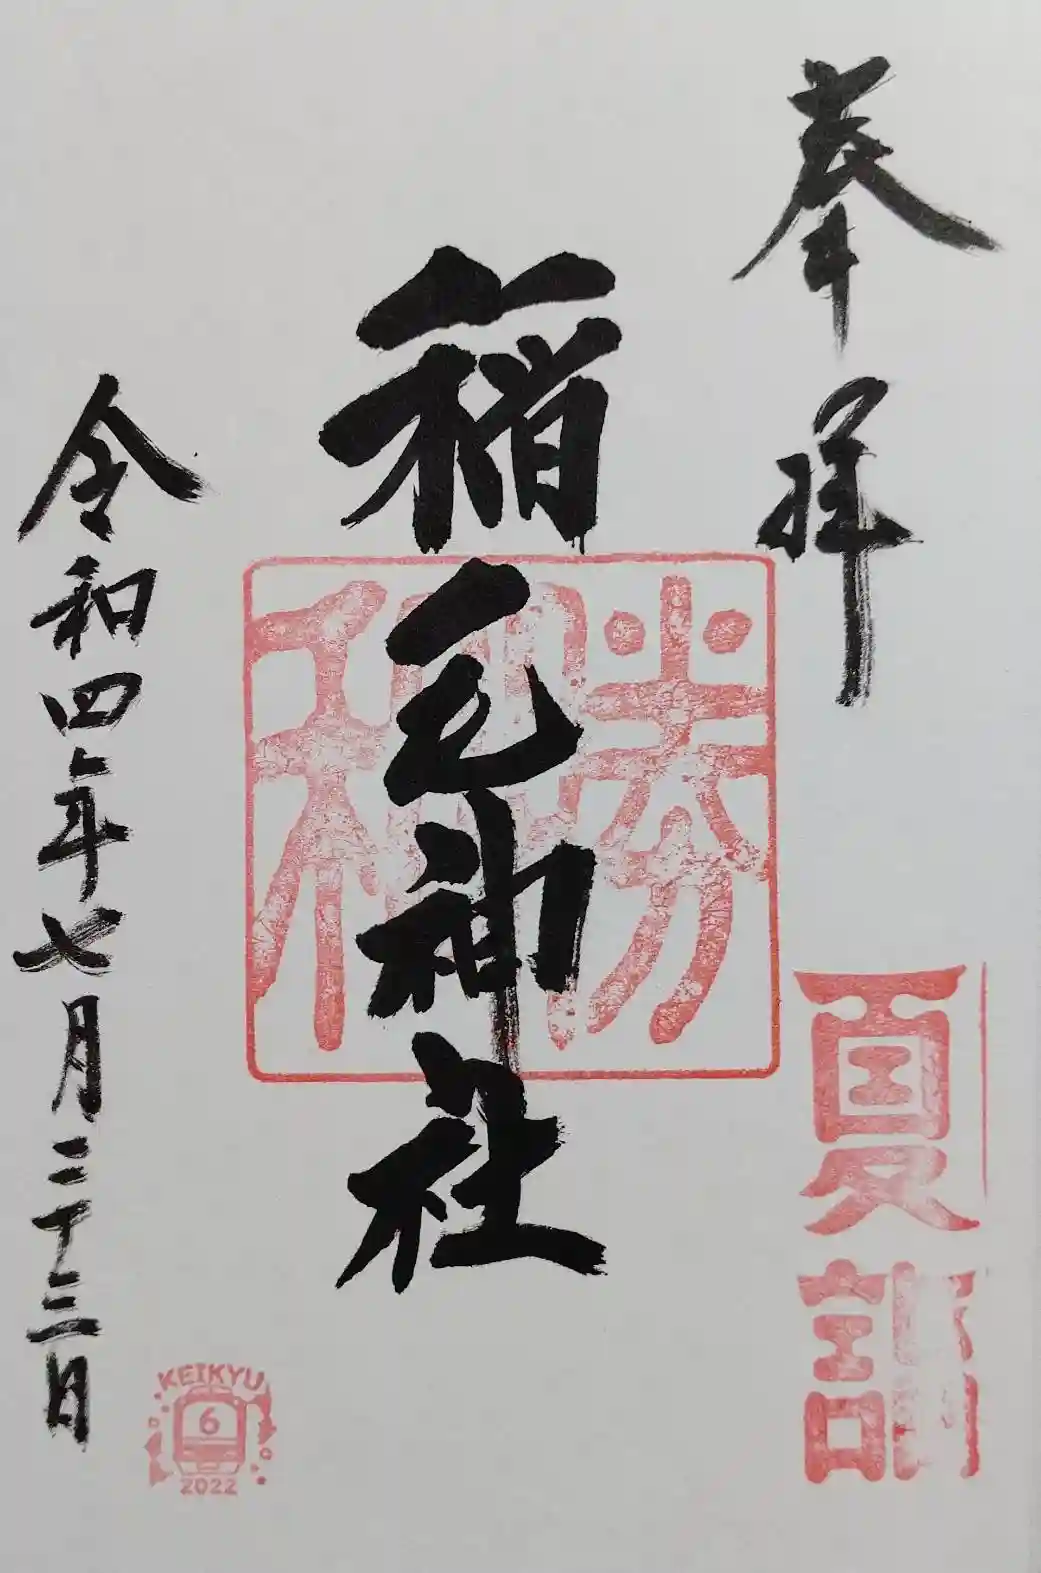 奉拝
夏詣
稲毛神社
令和四年七月二十三日
KEIKYU
6
2022